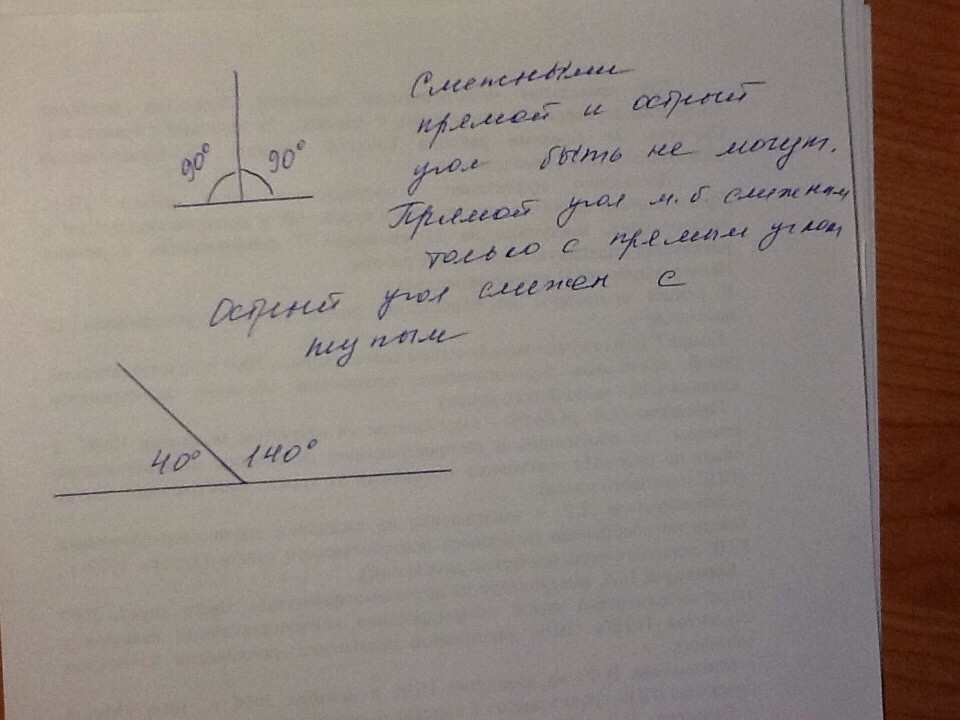 90° 90°
Смежными
прямой и острый
угол быть не могут.
Прямой угол м.б. смежным
только с прямым углом
Острый угол смежен с
тупым
40° 140°